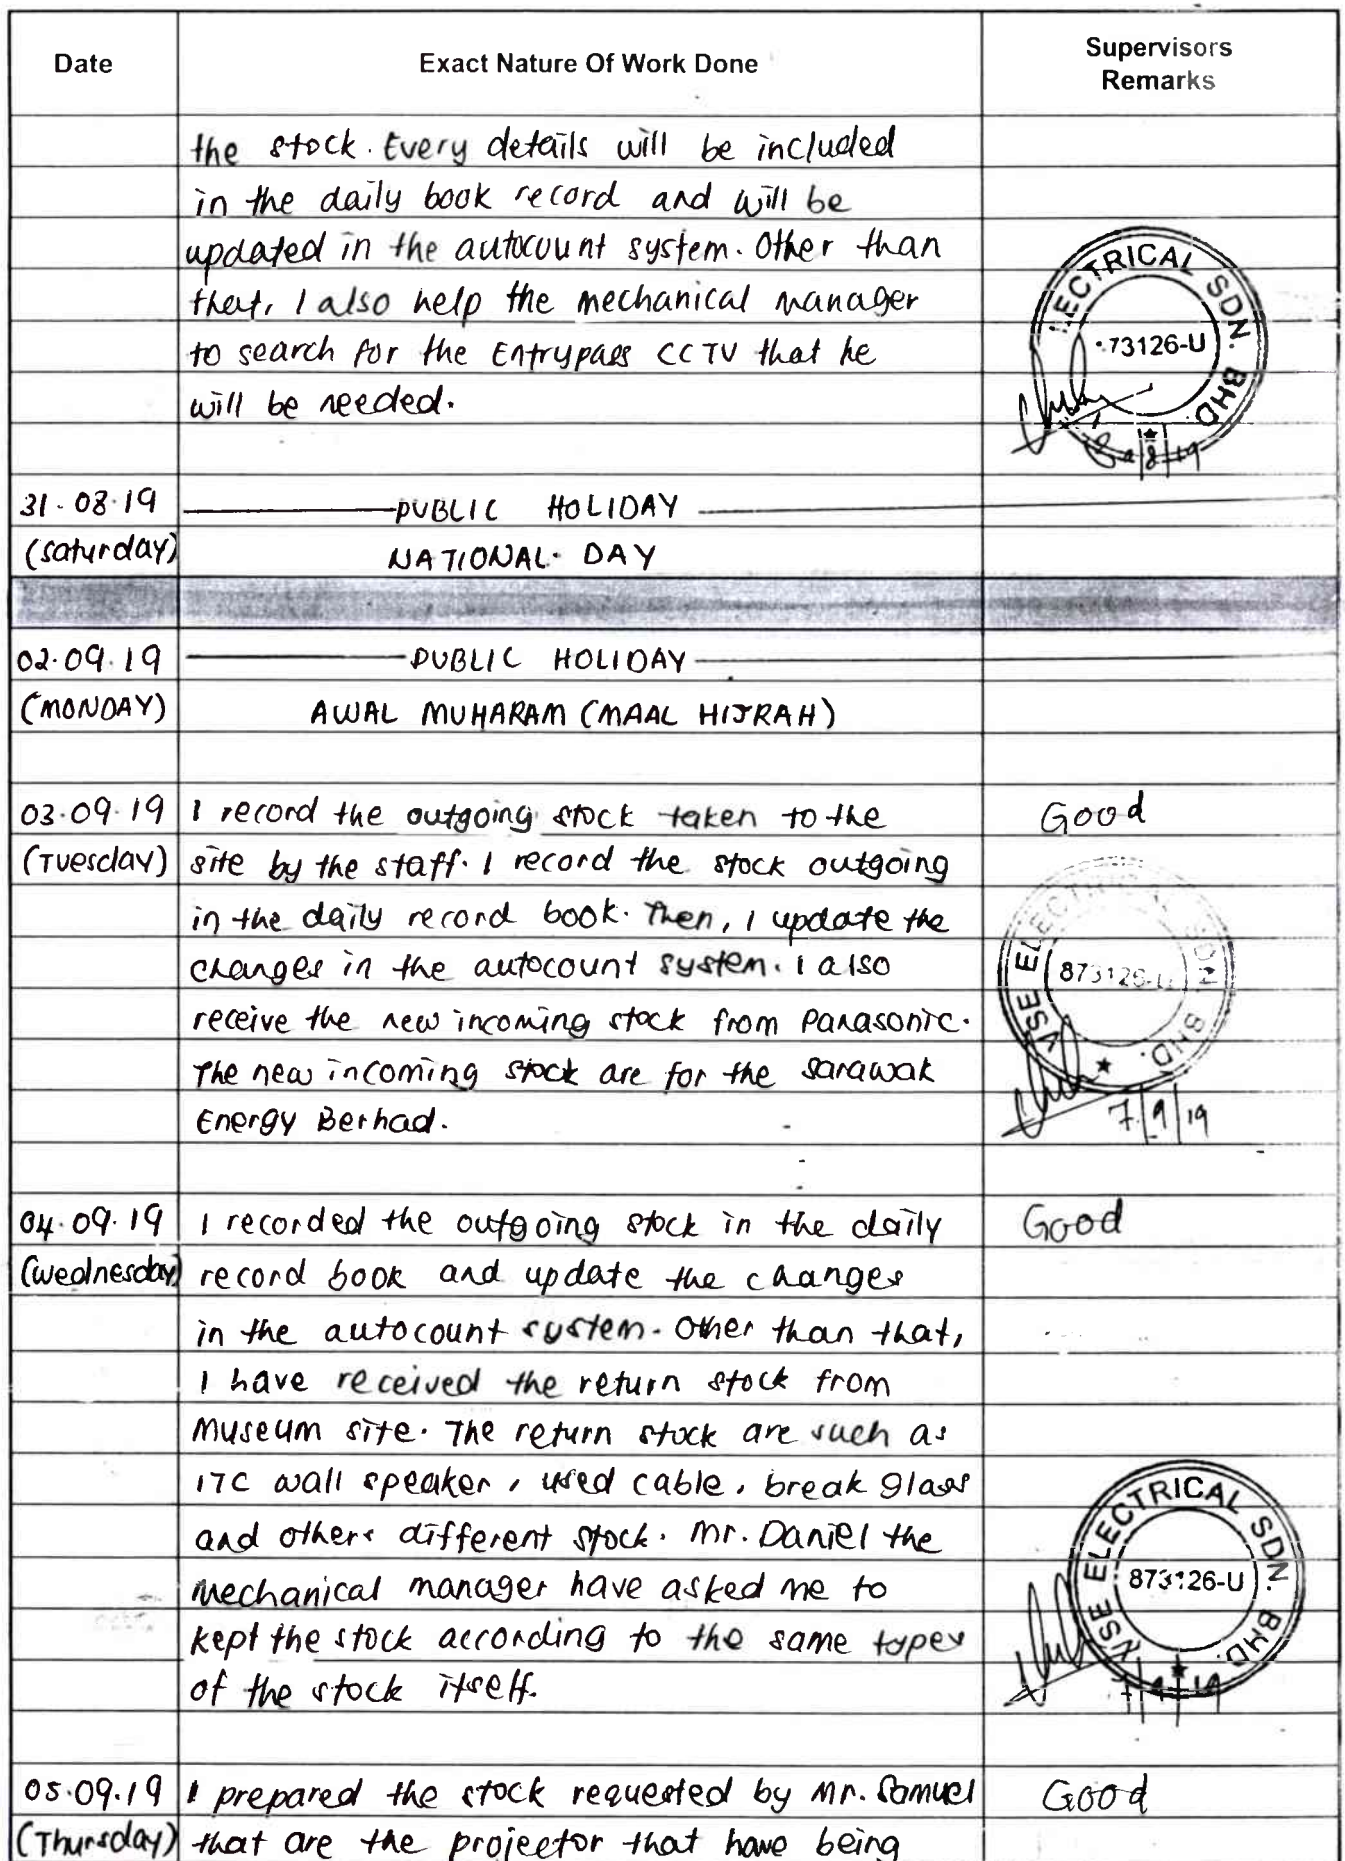 Date Exact Nature Of Work Done Supervisors
Remarks
the stock. Every details will be included
in the daily book record and will be
updated in the autocount system. Other than
that, I also help the mechanical manager
to search for the Entrypass CCTV that he
will be needed.
ECTRICAL SDN. BHD
73126-U
31.08.19 PUBLIC HOLIDAY
(Saturday) NATIONAL DAY
02.09.19 PUBLIC HOLIDAY
(MONDAY) AWAL MUHARAM (MAAL HIJRAH)
03.09.19 I record the outgoing stock taken to the Good
(Tuesday) site by the staff. I record the stock outgoing
in the daily record book. Then, I update the
changes in the autocount system. I also
receive the new incoming stock from Panasonic.
The new incoming stock are for the Sarawak
Energy Berhad.
VSE ELECTRICAL SDN. BHD.
873126-U
7/9/19
04.09.19 I recorded the outgoing stock in the daily Good
(Wednesday) record book and update the changes
in the autocount system. Other than that,
I have received the return stock from
Museum site. The return stock are such as
ITC wall speaker, used cable, break glass
and others different stock. Mr. Daniel the
mechanical manager have asked me to
kept the stock according to the same types
of the stock itself.
VSE ELECTRICAL SDN. BHD.
873126-U
05.09.19 I prepared the stock requested by Mr. Samuel Good
(Thursday) that are the projector that have being